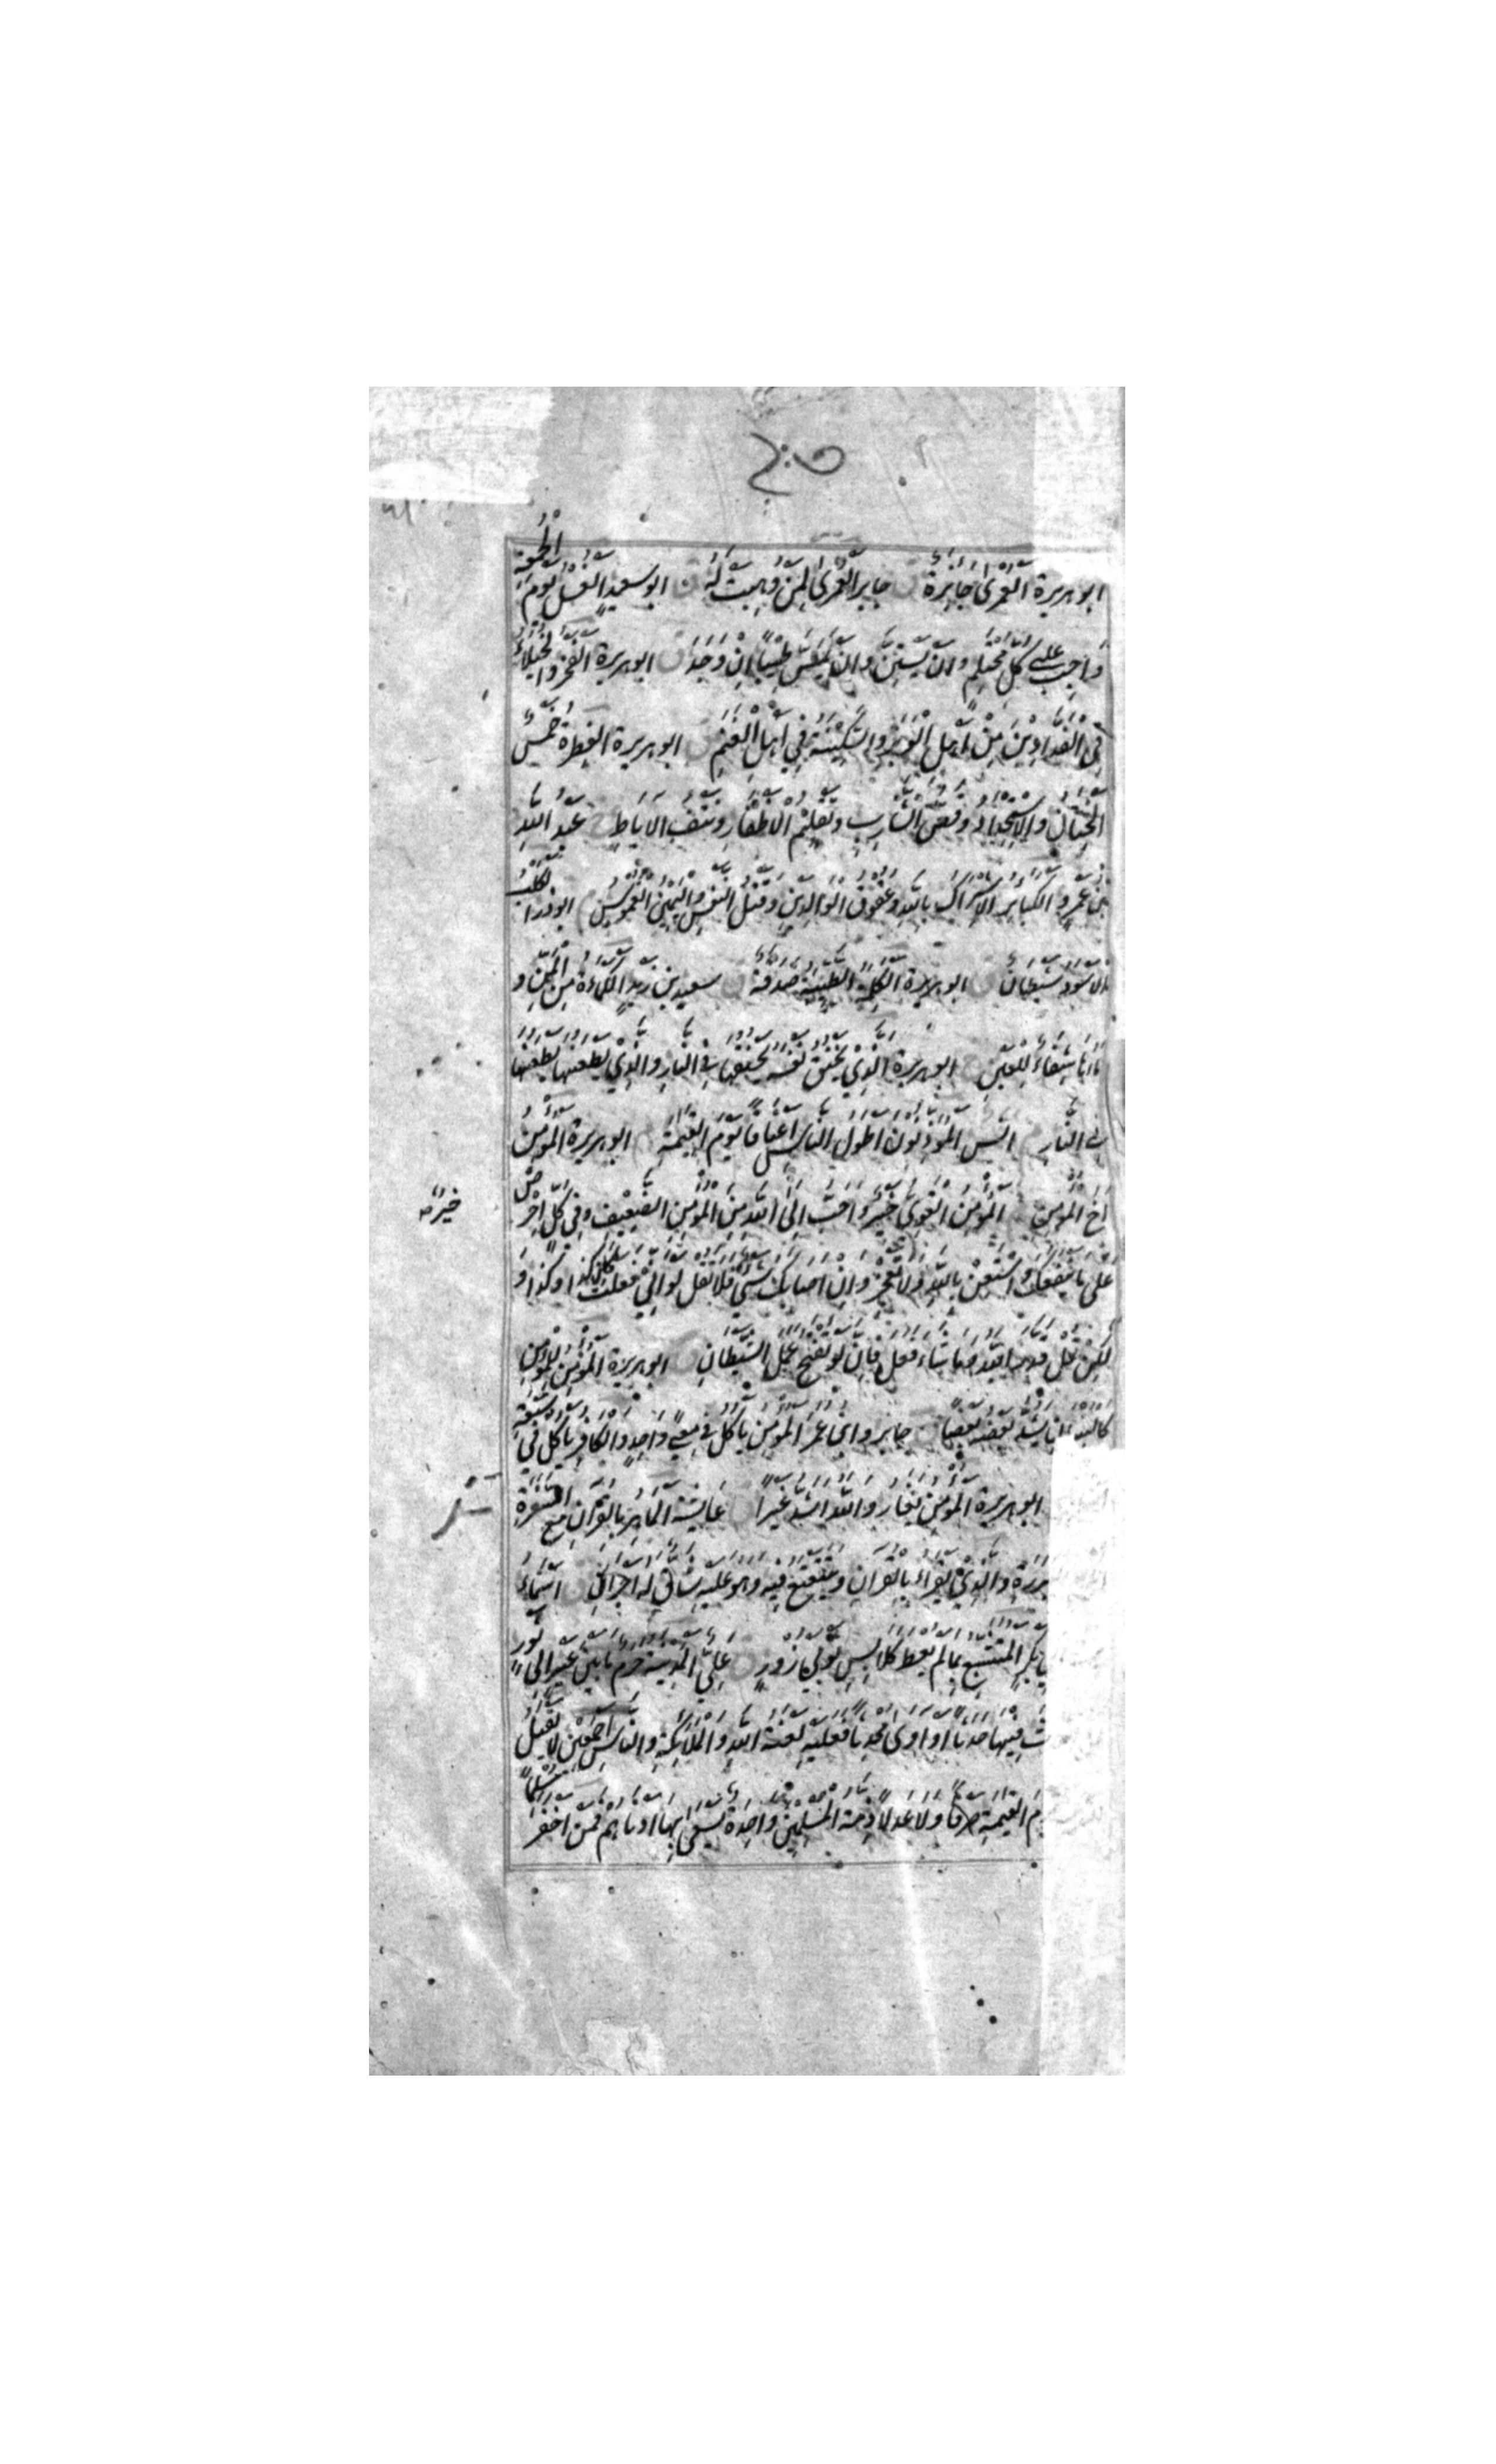 ابو هريرة العمرى جايزة ق جابر العمرى لمن وهبت له ق ابو سعيد الغسل يوم الجمعة
واجب على كل محتلم وان يستن وان يمس طيبا ان وجد ق ابو هريرة الفخر والخيلاء
في الفدادين من اهل الوبر والسكينة في اهل الغنم ق ابو هريرة الفطرة خمس
الختان والاستحداد وقص الشارب وتقليم الاظفار ونتف الاباط خ عبد الله
بن عمرو الكباير الاشراك بالله وعقوق الوالدين وقتل النفس واليمين الغموس م ابو ذر الكلب
الاسود شيطان ق ابو هريرة الكلمة الطيبة صدقة ق سعيد بن زيد الكماءة من المن و
ماءها شفاء للعين خ ابو هريرة الذي يخنق نفسه يخنقها في النار والذي يطعنها يطعنها
في النار م انس المؤذنون اطول الناس اعناقا يوم القيمة م ابو هريرة المؤمن
اخ المؤمن المؤمن القوى خير واحب الى الله من المؤمن الضعيف وفي كل احرص
خير
على ما ينفعك واستعن بالله ولا تعجز وان اصابك شيء فلا تقل لو اني فعلت كان كذا وكذا و
لكن قل قدر الله وما شاء فعل فان لو تفتح عمل الشيطان ق ابو هريرة المؤمن للمؤمن
كالبنيان يشد بعضه بعضا جابر وابن عمر المؤمن ياكل في معى واحد والكافر ياكل في سبعة
ابو هريرة المؤمن يغار والله اشد غيرا ق عايشة الماهر بالقرآن مع السفرة
البررة والذي يقراء بالقرآن ويتتعتع فيه وهو عليه شاق له اجران ق اسماء
بكر المتشبع بما لم يعط كلابس ثوبي زور ق على المدينة حرم ما بين عير الى ثور
فيها حدثا او اوى محدثا فعليه لعنة الله والملائكة والناس اجمعين لا يقبل
يوم القيمة صرفا ولا عدلا ذمة المسلمين واحدة يسعى بها ادناهم فمن اخفر مسلما